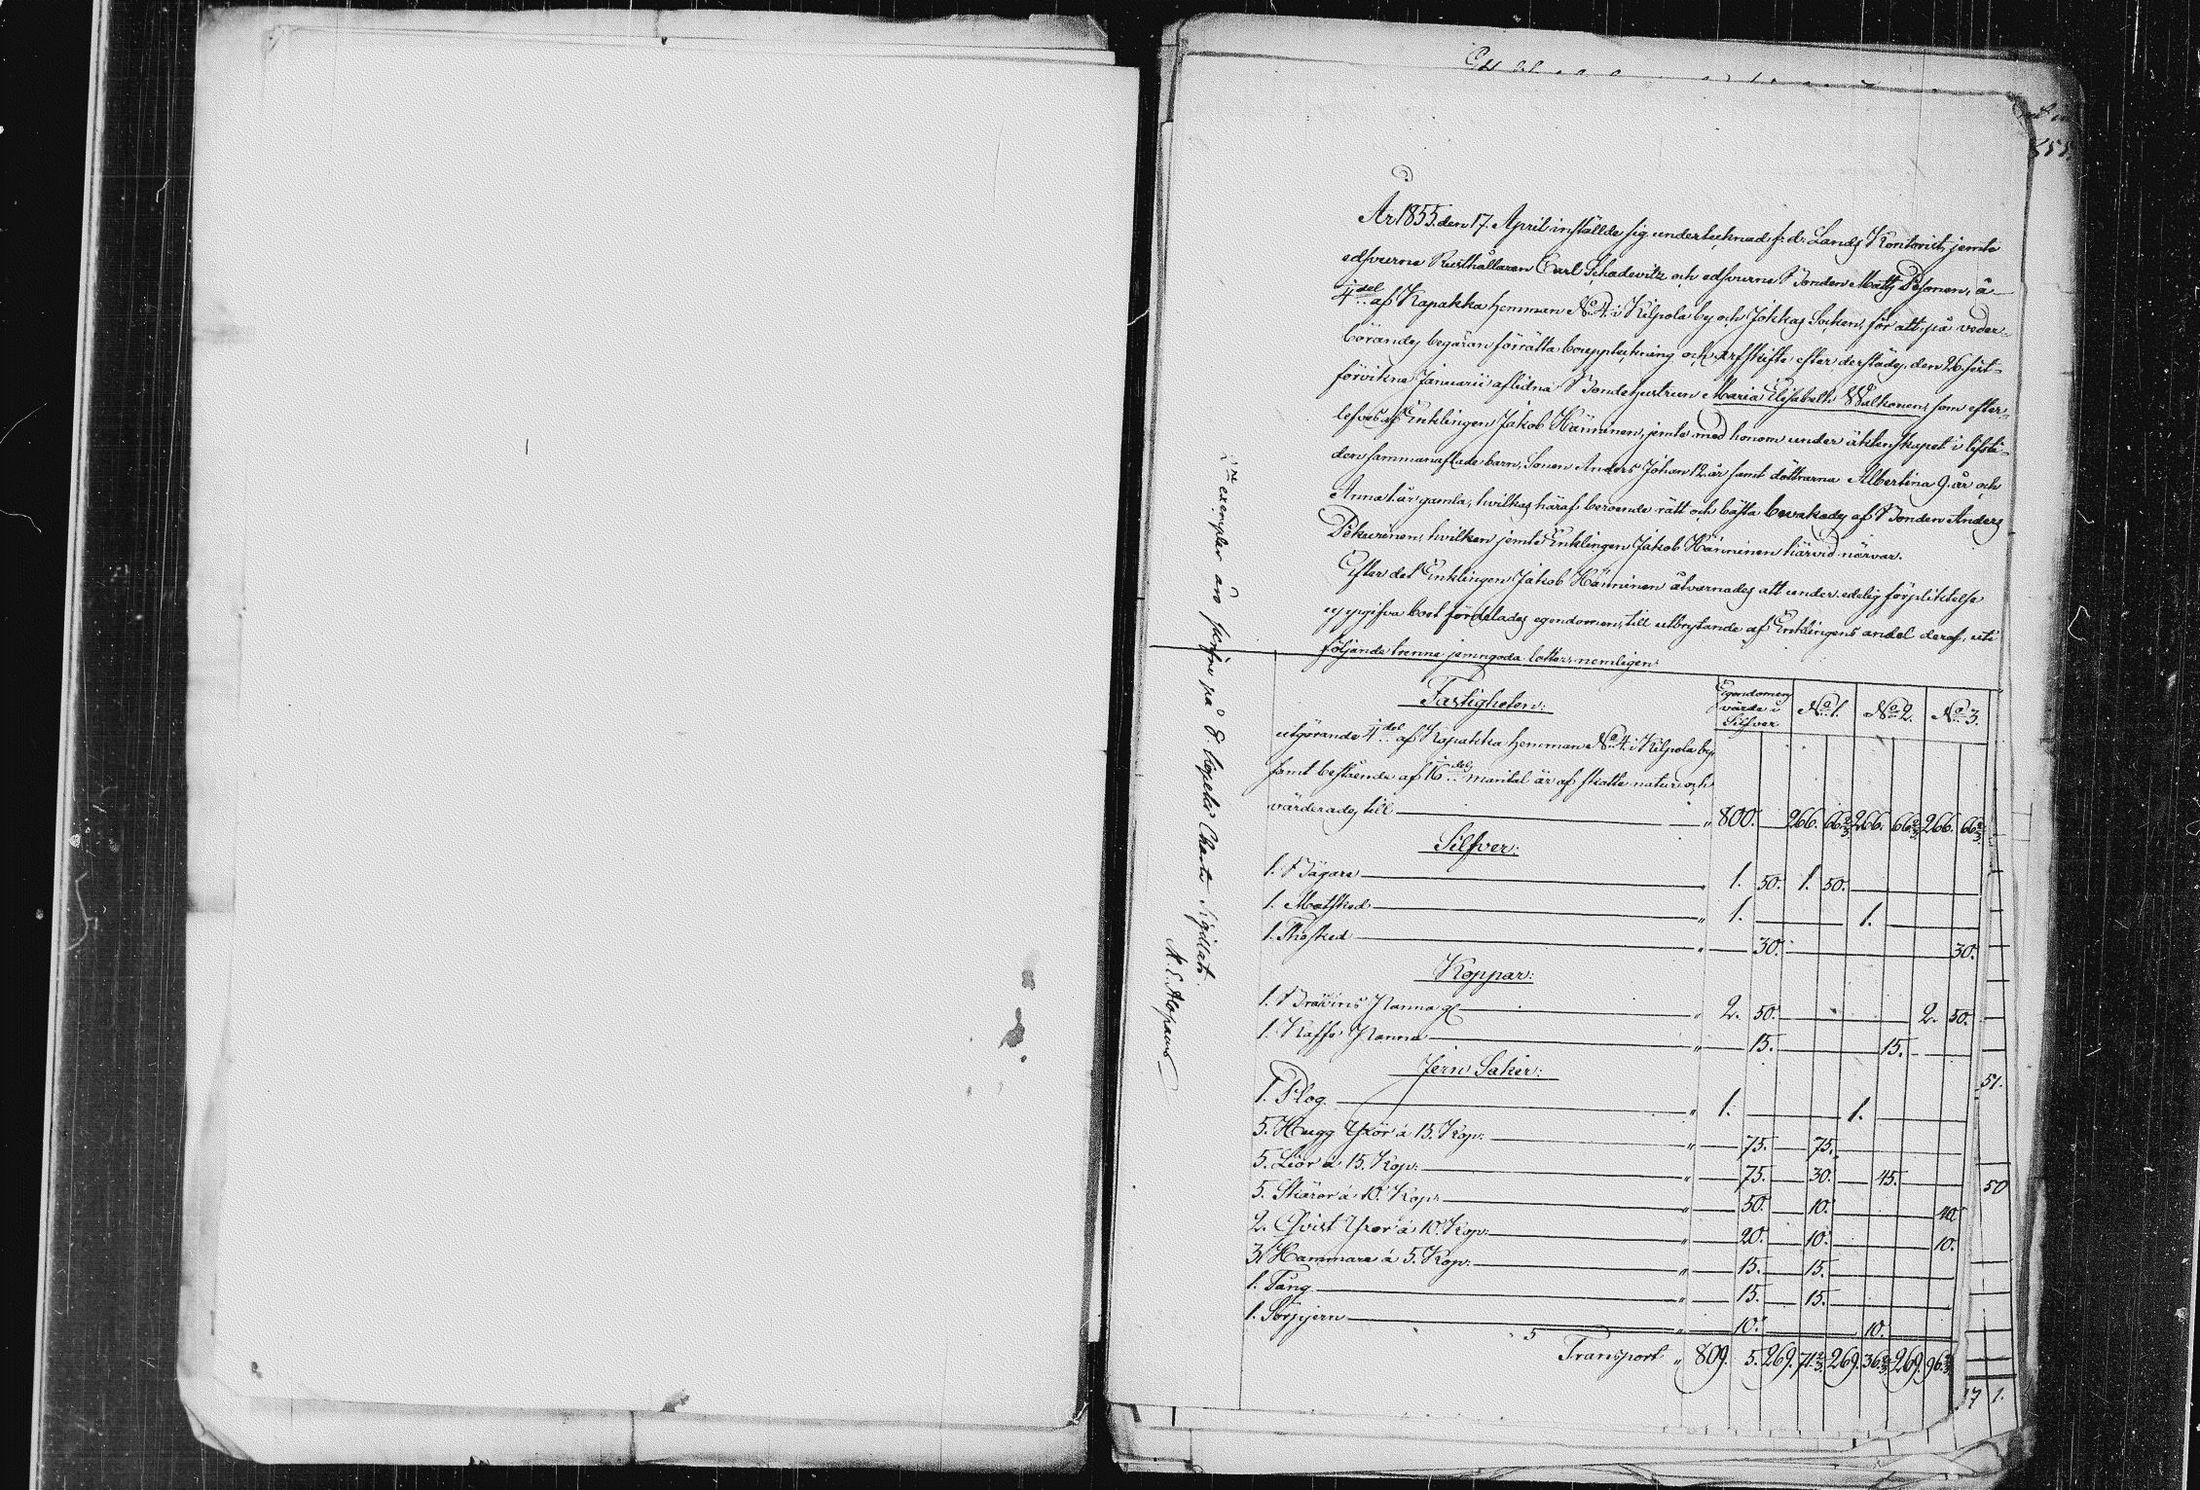 År 1855. den 17. April inställde sig undertecknad f: d: Lands Kontorist, jemte
edsvurne Rusthållaren Carl Schadevitz och edsvurne Bonden Matts Pesonen, å
¼del af Kapakka hemman No 4. i Kilpola by och Jokkas Socken, för att, på veder-
börandes begäran förrätta bouppteckning och arfskifte efter derstädes, den 26. sist-
förvikne Januarii aflidna Bondehustrun Maria Elisabeth Walkonen, som efter-
lefves af Enklingen Jakob Hänninen, jemte med honom under äktenskapet i lifsti-
den sammanaflade barn, Sonen Anders Johan 12 år samt döttrarna Albertina 9. år och
Anna 1. år gamla, hvilkas häraf beroende rätt och bästa bevakades af Bonden Anders
Pekurinen, hvilken jemte Enklingen Jakob Hänninen härvid närvar.
Efter det Enklingen Jakob Hänninen åtvarnades att under edelig förpliktelse
uppgifva boet fördelades egendomen, till utbrytande af Enklingens andel deraf, uti
följande trenne jemngoda lotter nemligen:
Fastigheten: Egendomens värde i Silfver No 1. No 2. No 3.
utgörande ¼del af Kapakka hemman No 4. i Kilpola by
samt bestående af 1/16 del mantal är af skatte natur och
värderades till " 800. 266. 66⅔ 266. 66⅔ 266. 66⅔
Silfver:
1. Bägare " 1. 50. 1. 50.
1. Matsked " 1. 1.
1. Thesked " 30. 30.
Koppar:
1. Bränvins Kanna gl " 2. 50. 2. 50.
1. Kaffe Kanna " 15. 15.
Jern Saker:
1. Plog " 1. 1.
5. Hugg Yxor á 15. Kop: " 75. 75.
5. Liar á 15. Kop: " 75. 30. 45.
5. Skäror á 10. Kop: " 50. 10. 40.
2. Qvist Yxor á 10. Kop: " 20. 10. 10.
3. Hammare á 5. Kop: " 15. 15.
1. Tång " 15. 15.
1. Törpjern " 10. 10.
Transport " 809. 5. 269. 71⅔ 269. 36⅔ 269. 96⅔
51.
50
17 1.
2ne exemplar äro skrifne på